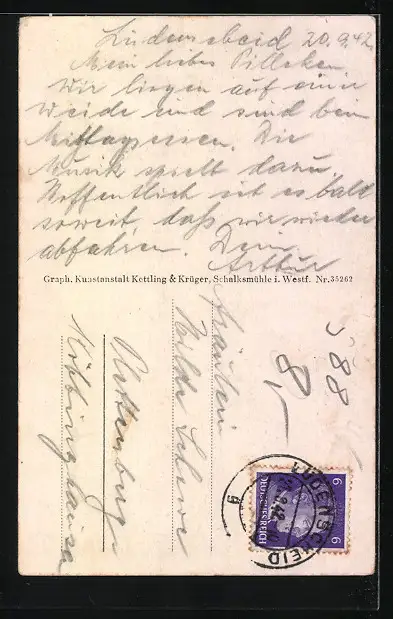 Lüdenscheid 20.9.42.
Mein liebes Pilleken
Wir liegen auf einer
Weide und sind beim
Mittagessen. Die
Musik spielt dazu.
Hoffentlich ist es bald
soweit, daß wir wieder
abfahren. Dein
Arthur
Graph. Kunstanstalt Kettling & Krüger, Schalksmühle i. Westf. Nr. 35262
Fräulein
Hilde
388
8
LÜDENSCHEID
g
6 6
DEUTSCHES REICH